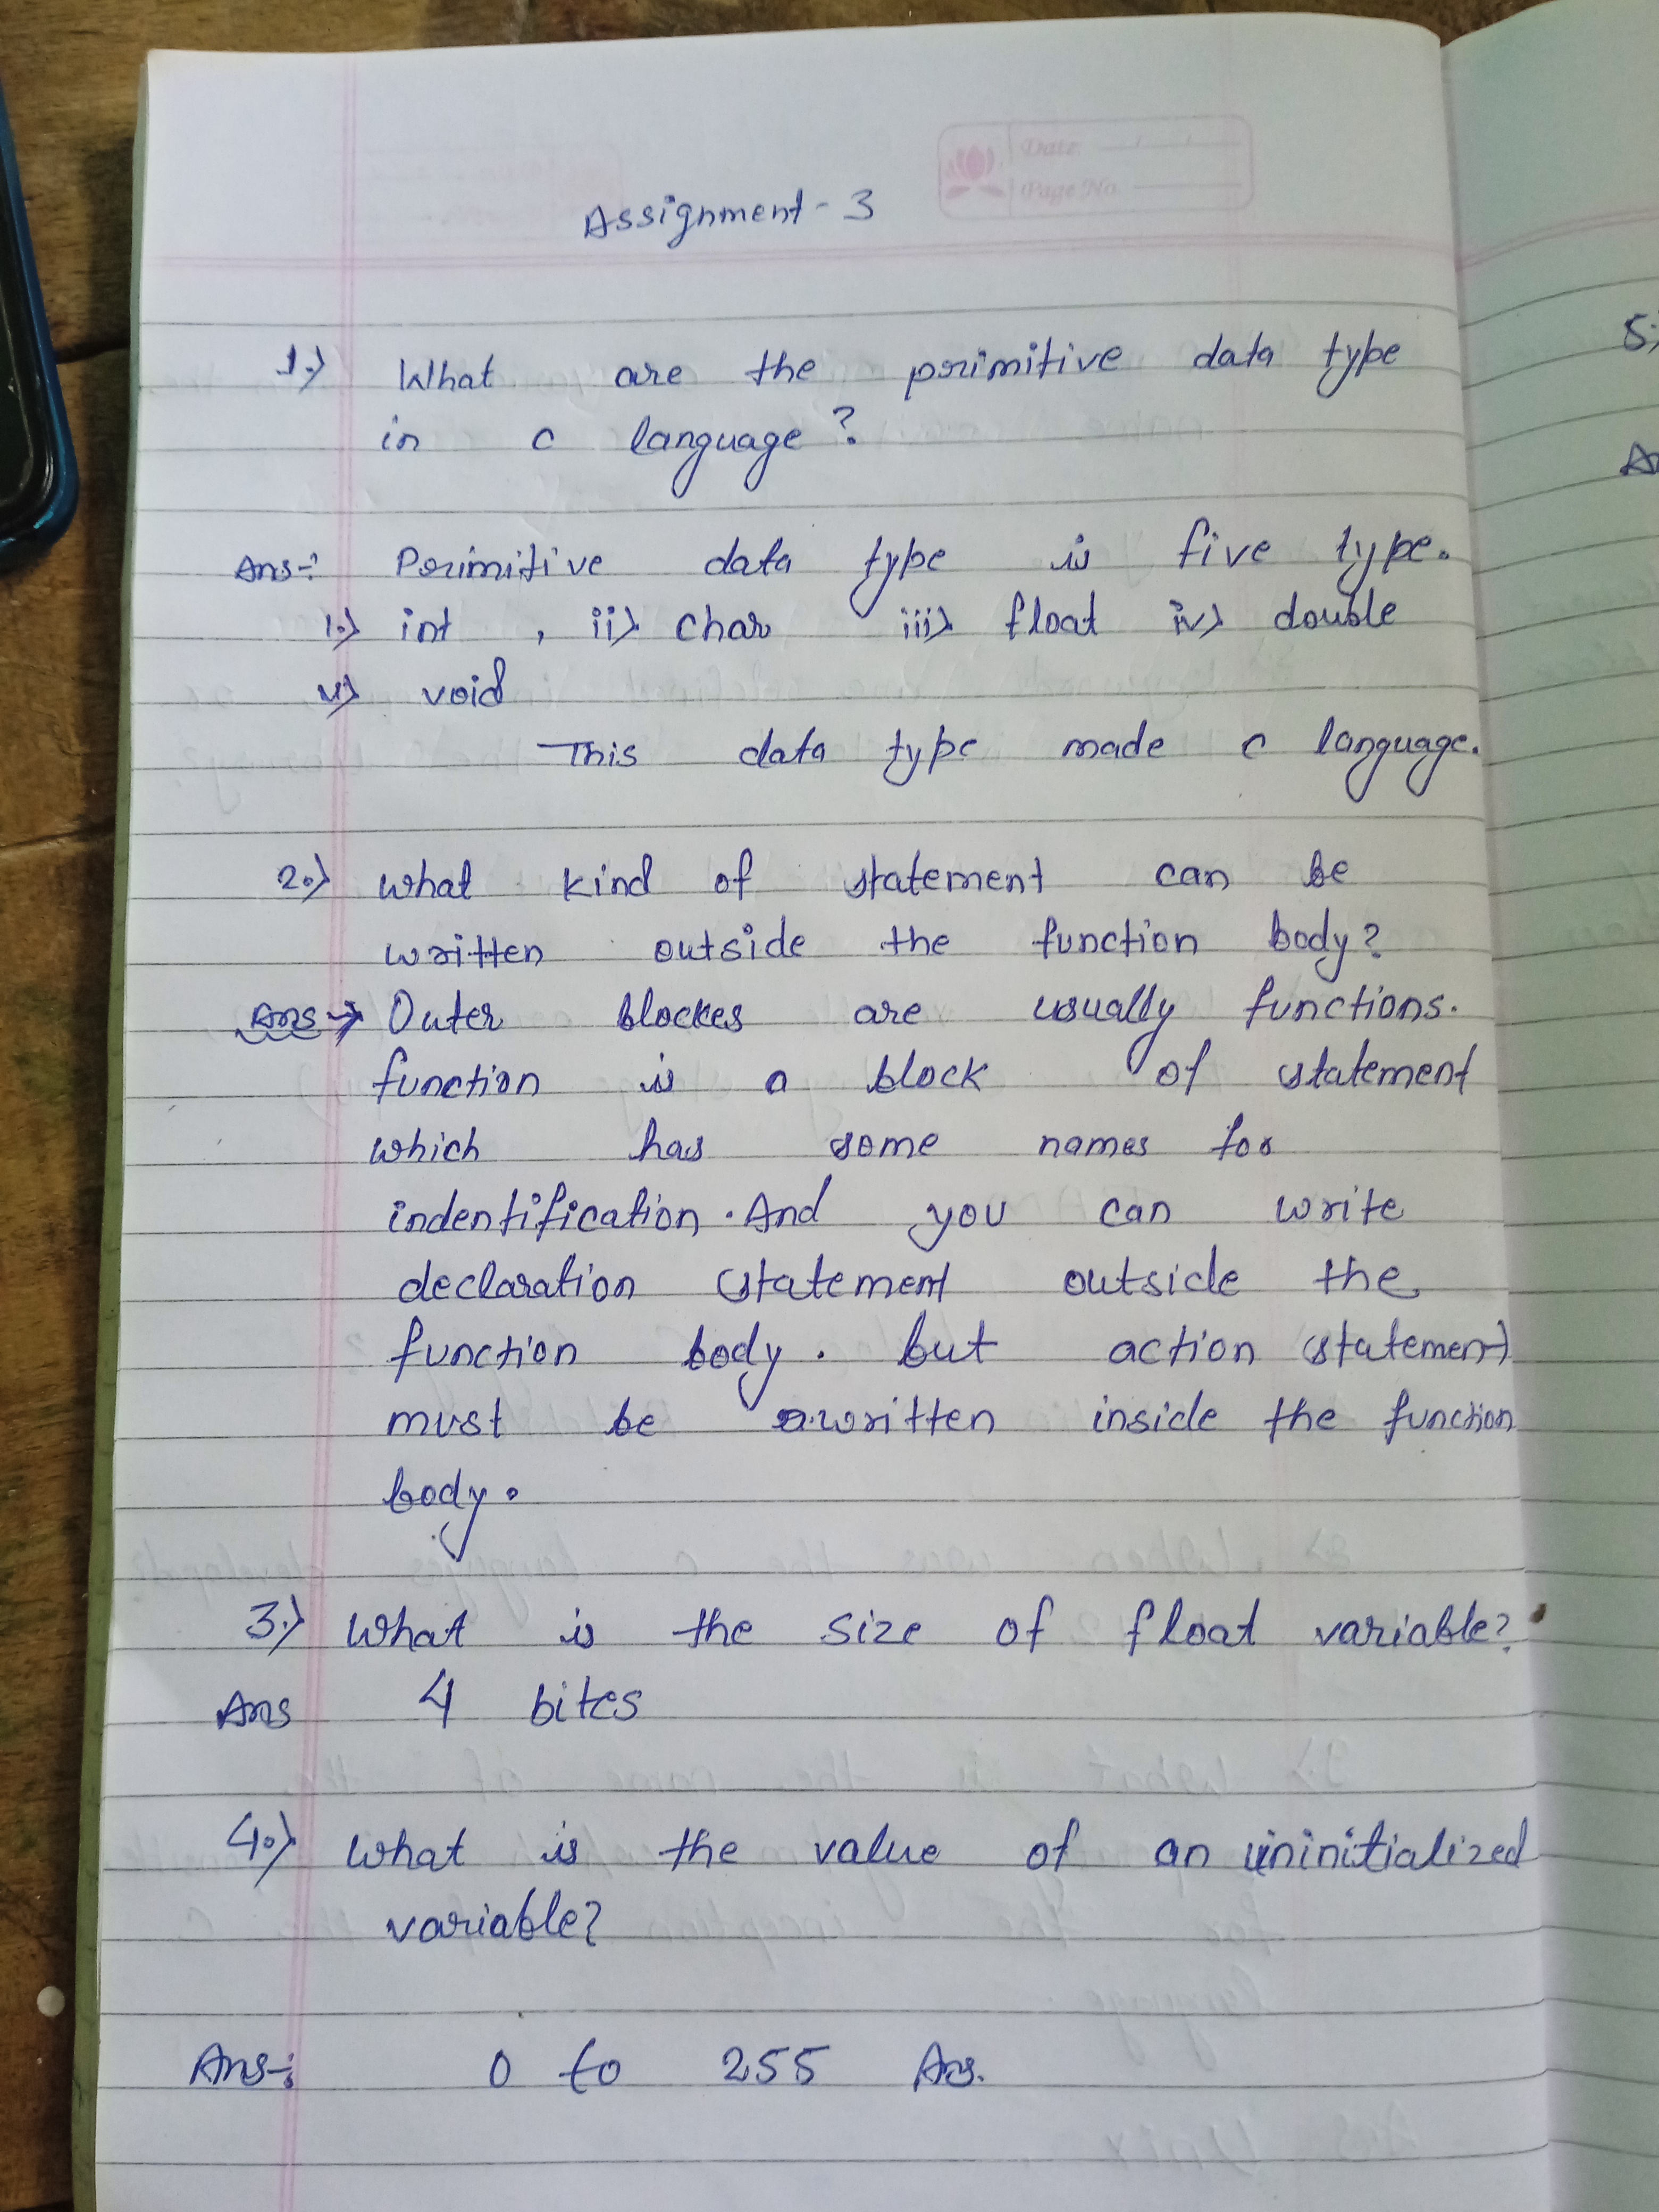 Date: / /
Page No.
Assignment - 3
1.) What are the primitive data type
in c language?
Ans-: Primitive data type is five type.
i.) int , ii) char iii) float iv) double
v) void
This data type made c language.
2.) What kind of statement can be
written outside the function body?
Ans → Outer blockes are usually functions.
function is a block of statement
which has some names for
indentification. And you can write
declaration statement outside the
function body. but action statement
must be written inside the function
body.
3.) What is the size of float variable?
Ans 4 bites
4.) What is the value of an uninitialized
variable?
Ans-: 0 to 255 Ans.
5.)